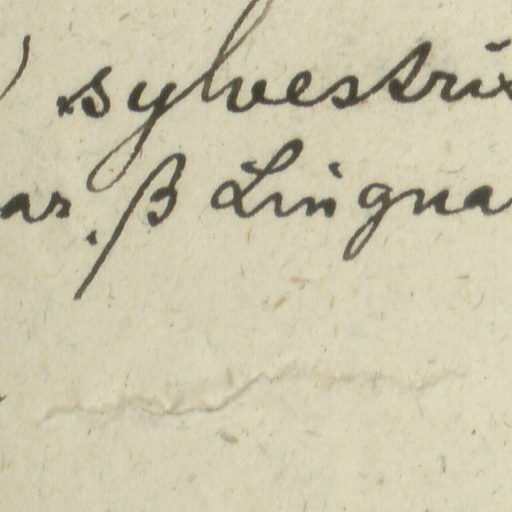 ) sylvestris
ar. β Lingua